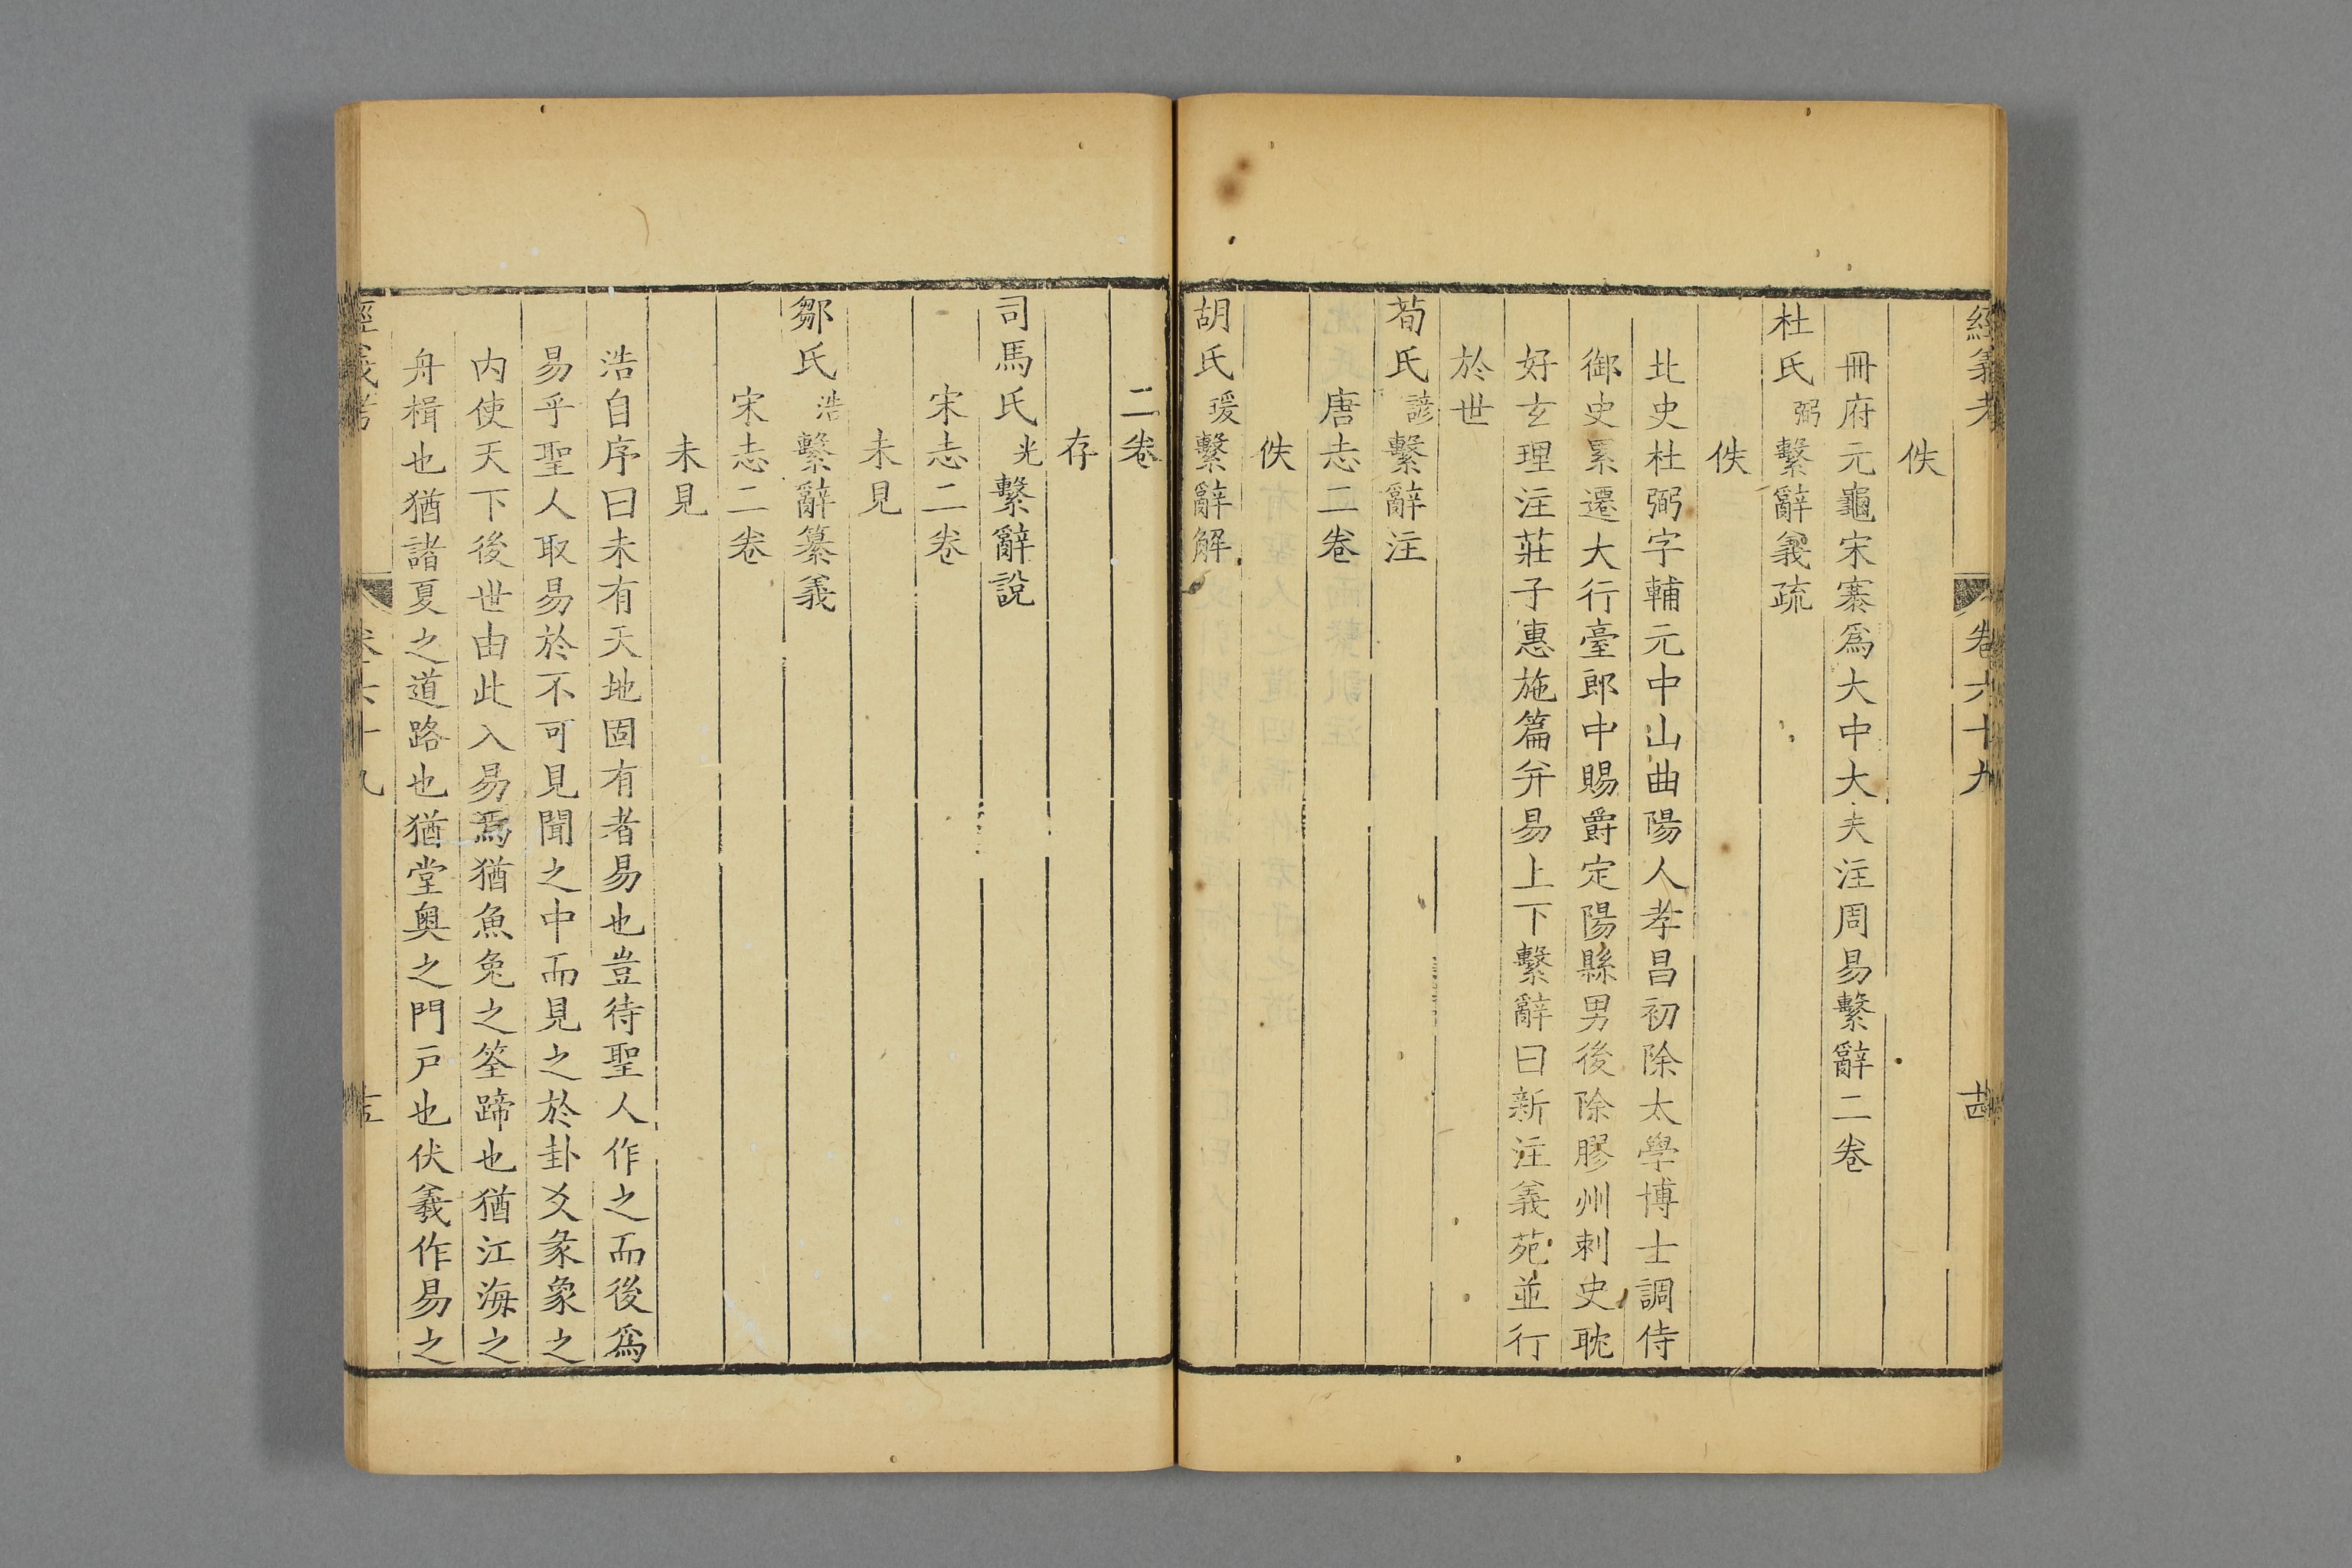 經義考 卷六十九 十四
佚
冊府元龜宋褰爲大中大夫注周易繫辭二卷
杜氏弼繫辭義疏
佚
北史杜弼字輔元中山曲陽人孝昌初除太學博士調侍
御史累遷大行臺郎中賜爵定陽縣男後除膠州刺史耽
好玄理注莊子惠施篇并易上下繫辭曰新注義苑並行
於世
荀氏諺繫辭注
唐志二卷
佚
胡氏瑗繫辭解
二卷
存
司馬氏光繫辭說
宋志二卷
未見
鄒氏浩繫辭纂義
宋志二卷
未見
浩自序曰未有天地固有者易也豈待聖人作之而後爲
易乎聖人取易於不可見聞之中而見之於卦爻彖象之
内使天下後世由此入易焉猶魚兔之筌蹄也猶江海之
舟楫也猶諸夏之道路也猶堂奥之門戸也伏羲作易之
經義考 卷六十九